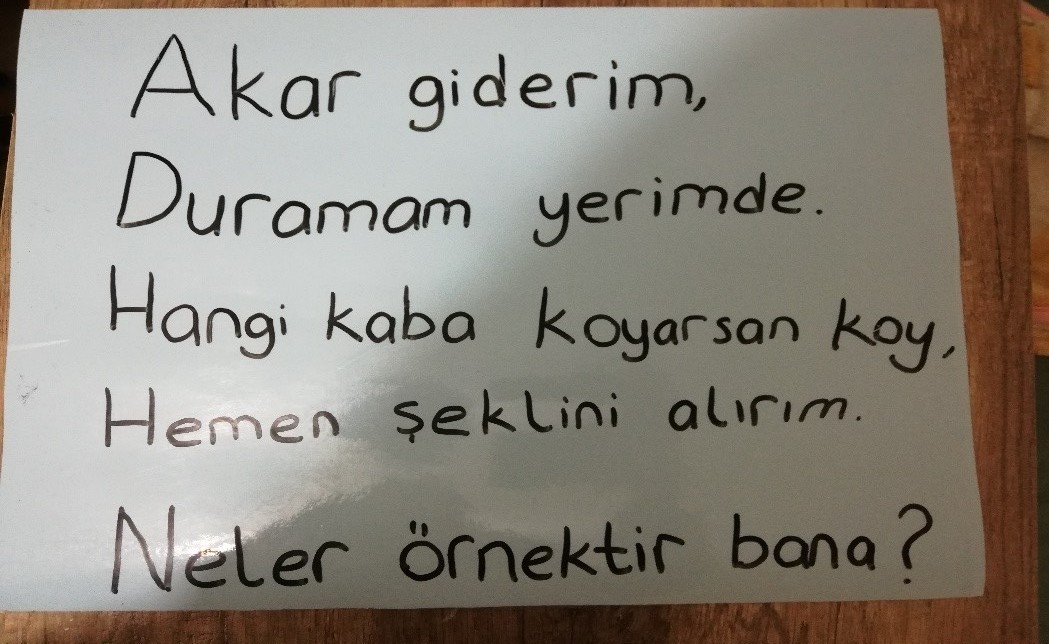 Akar giderim,
Duramam yerimde.
Hangi kaba koyarsan koy,
Hemen şeklini alırım.
Neler örnektir bana?